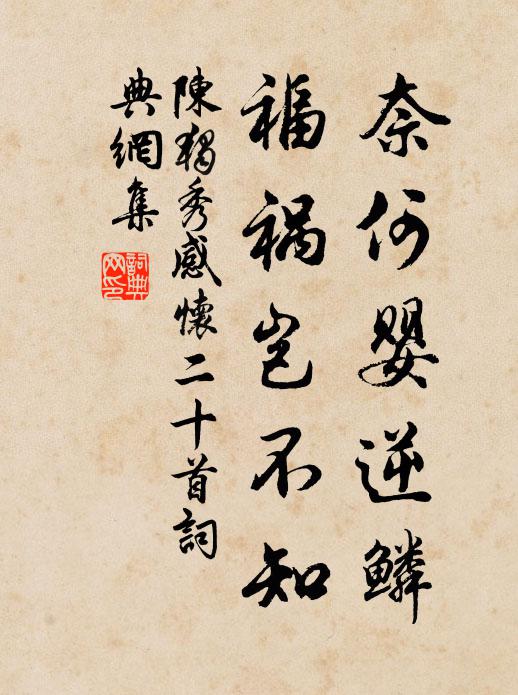 奈何嬰逆鱗
福禍豈不知
陳獨秀感懷二十首詞
典網集
詞典
网印